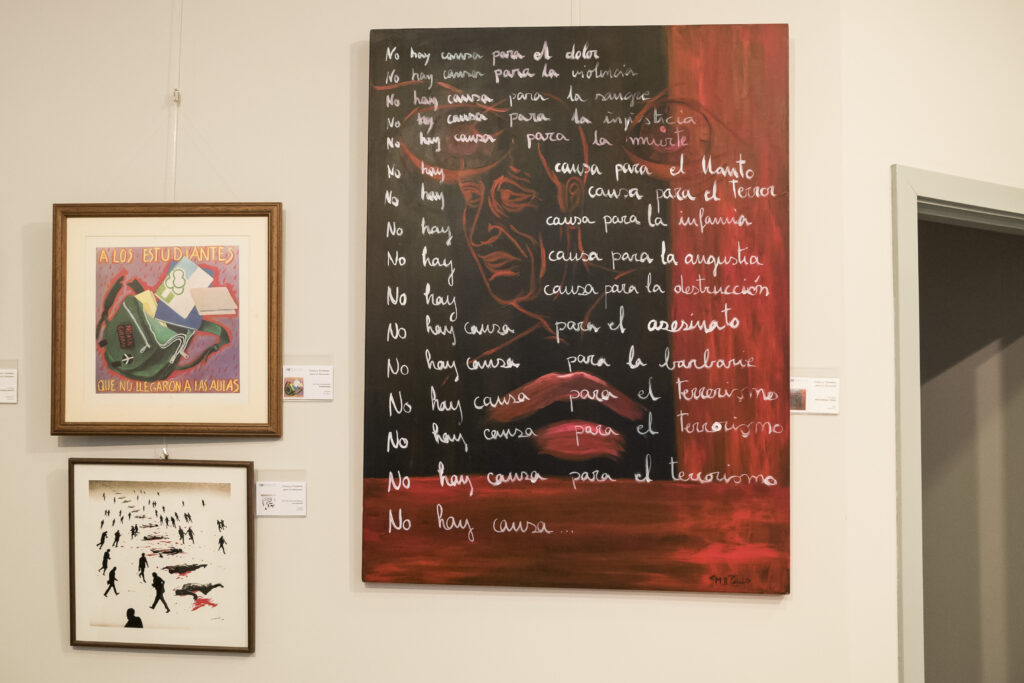 A LOS ESTUDIANTES
QUE NO LLEGARON A LAS AULAS
No hay causa para el dolor
No hay causa para la violencia
No hay causa para la sangre
No hay causa para la injusticia
No hay causa para la muerte
No hay causa para el llanto
No hay causa para el terror
No hay causa para la infamia
No hay causa para la angustia
No hay causa para la destrucción
No hay causa para el asesinato
No hay causa para la barbarie
No hay causa para el terrorismo
No hay causa para el terrorismo
No hay causa para el terrorismo
No hay causa...